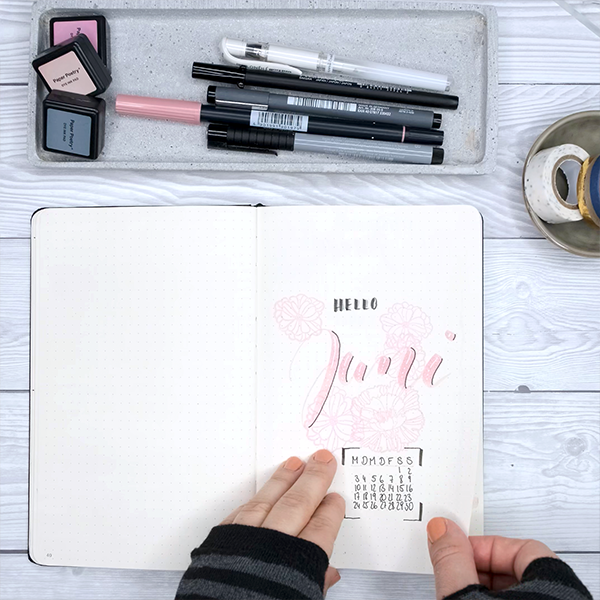 Paper Poetry
Paper Poetry
HELLO
Juni
M D M D F S S
1 2
3 4 5 6 7 8 9
10 11 12 13 14 15 16
17 18 19 20 21 22 23
24 25 26 27 28 29 30